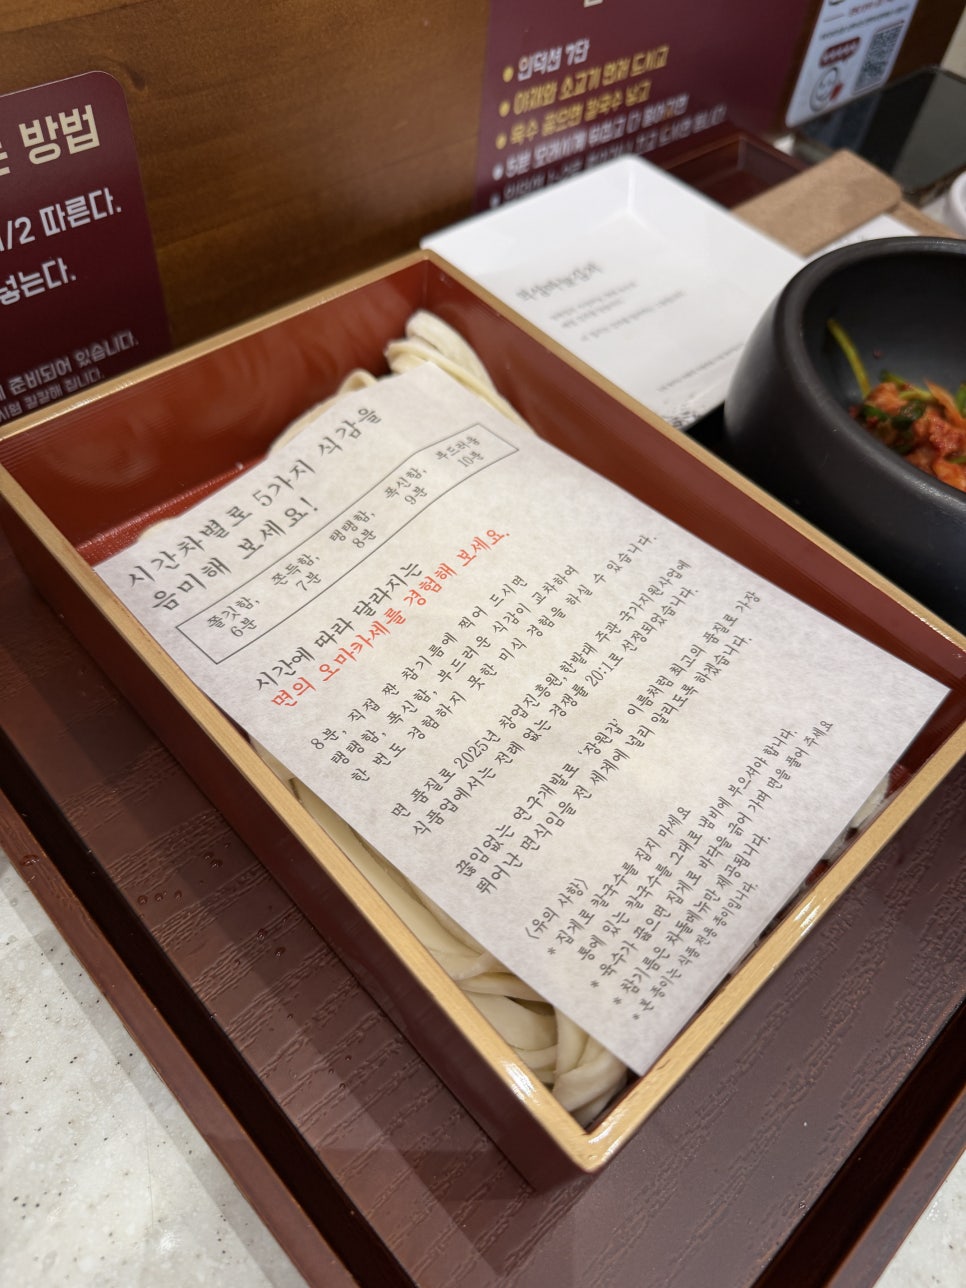 방법
1/2 따른다.
넣는다.
준비되어 있습니다.
인덕션 7단
야채와 소고기 먼저 드시고
육수 끓으면 칼국수 넣고
시간차별로 5가지 식감을
음미해 보세요!
쫄깃함, 쫀득함, 탱탱함, 폭신함, 부드러움
6분 7분 8분 9분 10분
시간에 따라 달라지는
면의 오마카세를 경험해 보세요.
8분, 직접 짠 참기름에 찍어 드시면
탱탱함, 폭신함, 부드러운 식감이 교차하여
한 번도 경험하지 못한 미식 경험을 하실 수 있습니다.
면 품질로 2025년 창업진흥원,한밭대 주관 국가지원사업에
식품업에서는 전례 없는 경쟁률 20:1로 선정되었습니다.
끊임없는 연구개발로 '장원갑' 이름처럼 최고의 품질로 가장
뛰어난 면식임을 전 세계에 널리 알리도록 하겠습니다.
(유의 사항)
* 집게로 칼국수를 집지 마세요
통에 있는 칼국수를 그대로 냄비에 부으셔야 합니다.
* 육수가 끓으면 집게로 바닥을 긁어 가며 면을 풀어 주세요
* 참기름은 차돌메뉴만 제공됩니다.
* 본 종이는 식품 전용 종이입니다.